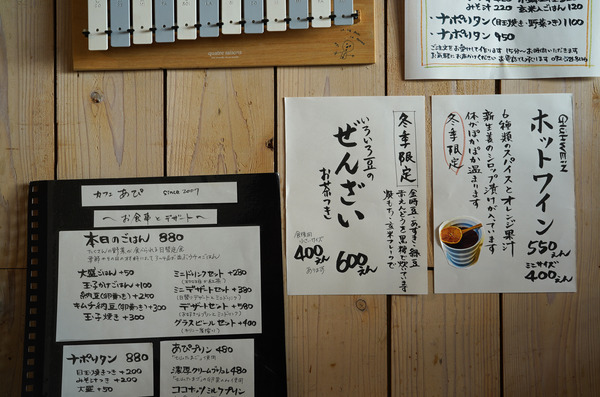 みそ汁 220 玄米入ごはん 120
・ナポリタン (目玉焼き・野菜つき) 1100
・ナポリタン 950
ご注文をお受けして作ります 15分〜お時間いただきます
カフェ あぴ since 2007
〜お食事とデザート〜
本日のごはん 880
大盛ごはん +50
玉子かけごはん +100
納豆(卵黄つき) +250
キムチ納豆(卵黄つき) +300
玉子焼き +300
ミニドリンクセット +280
ミニデザートセット +380
デザートセット +580
グラスビールセット +400
ナポリタン 880
目玉焼きつき +200
みそ汁つき +200
大盛 +50
あぴプリン 480
濃厚クリームブリュレ 480
ココナッツミルクプリン
冬季限定
いろいろ豆の
ぜんざい
お茶つき
600えん
400えん
金時豆・あずき・緑豆
赤えんどうを黒糖で炊いています
Gluhwein
ホットワイン
550えん
ミニサイズ
400えん
6種類のスパイスとオレンジ果汁
新生姜のシロップ漬けが入っています
体がぽかぽか温まります
冬季限定